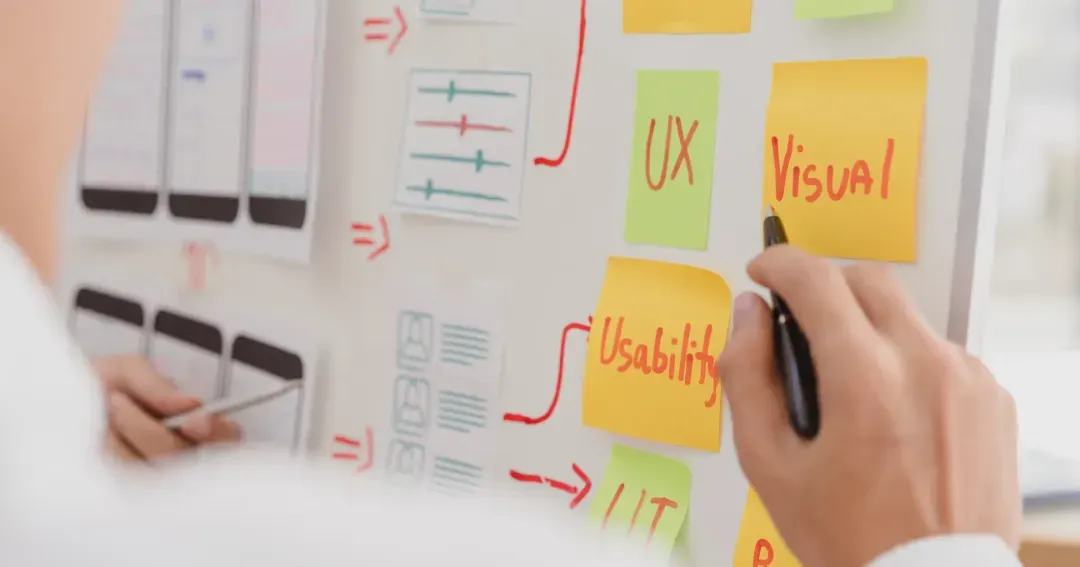 UX
Visual
Usability